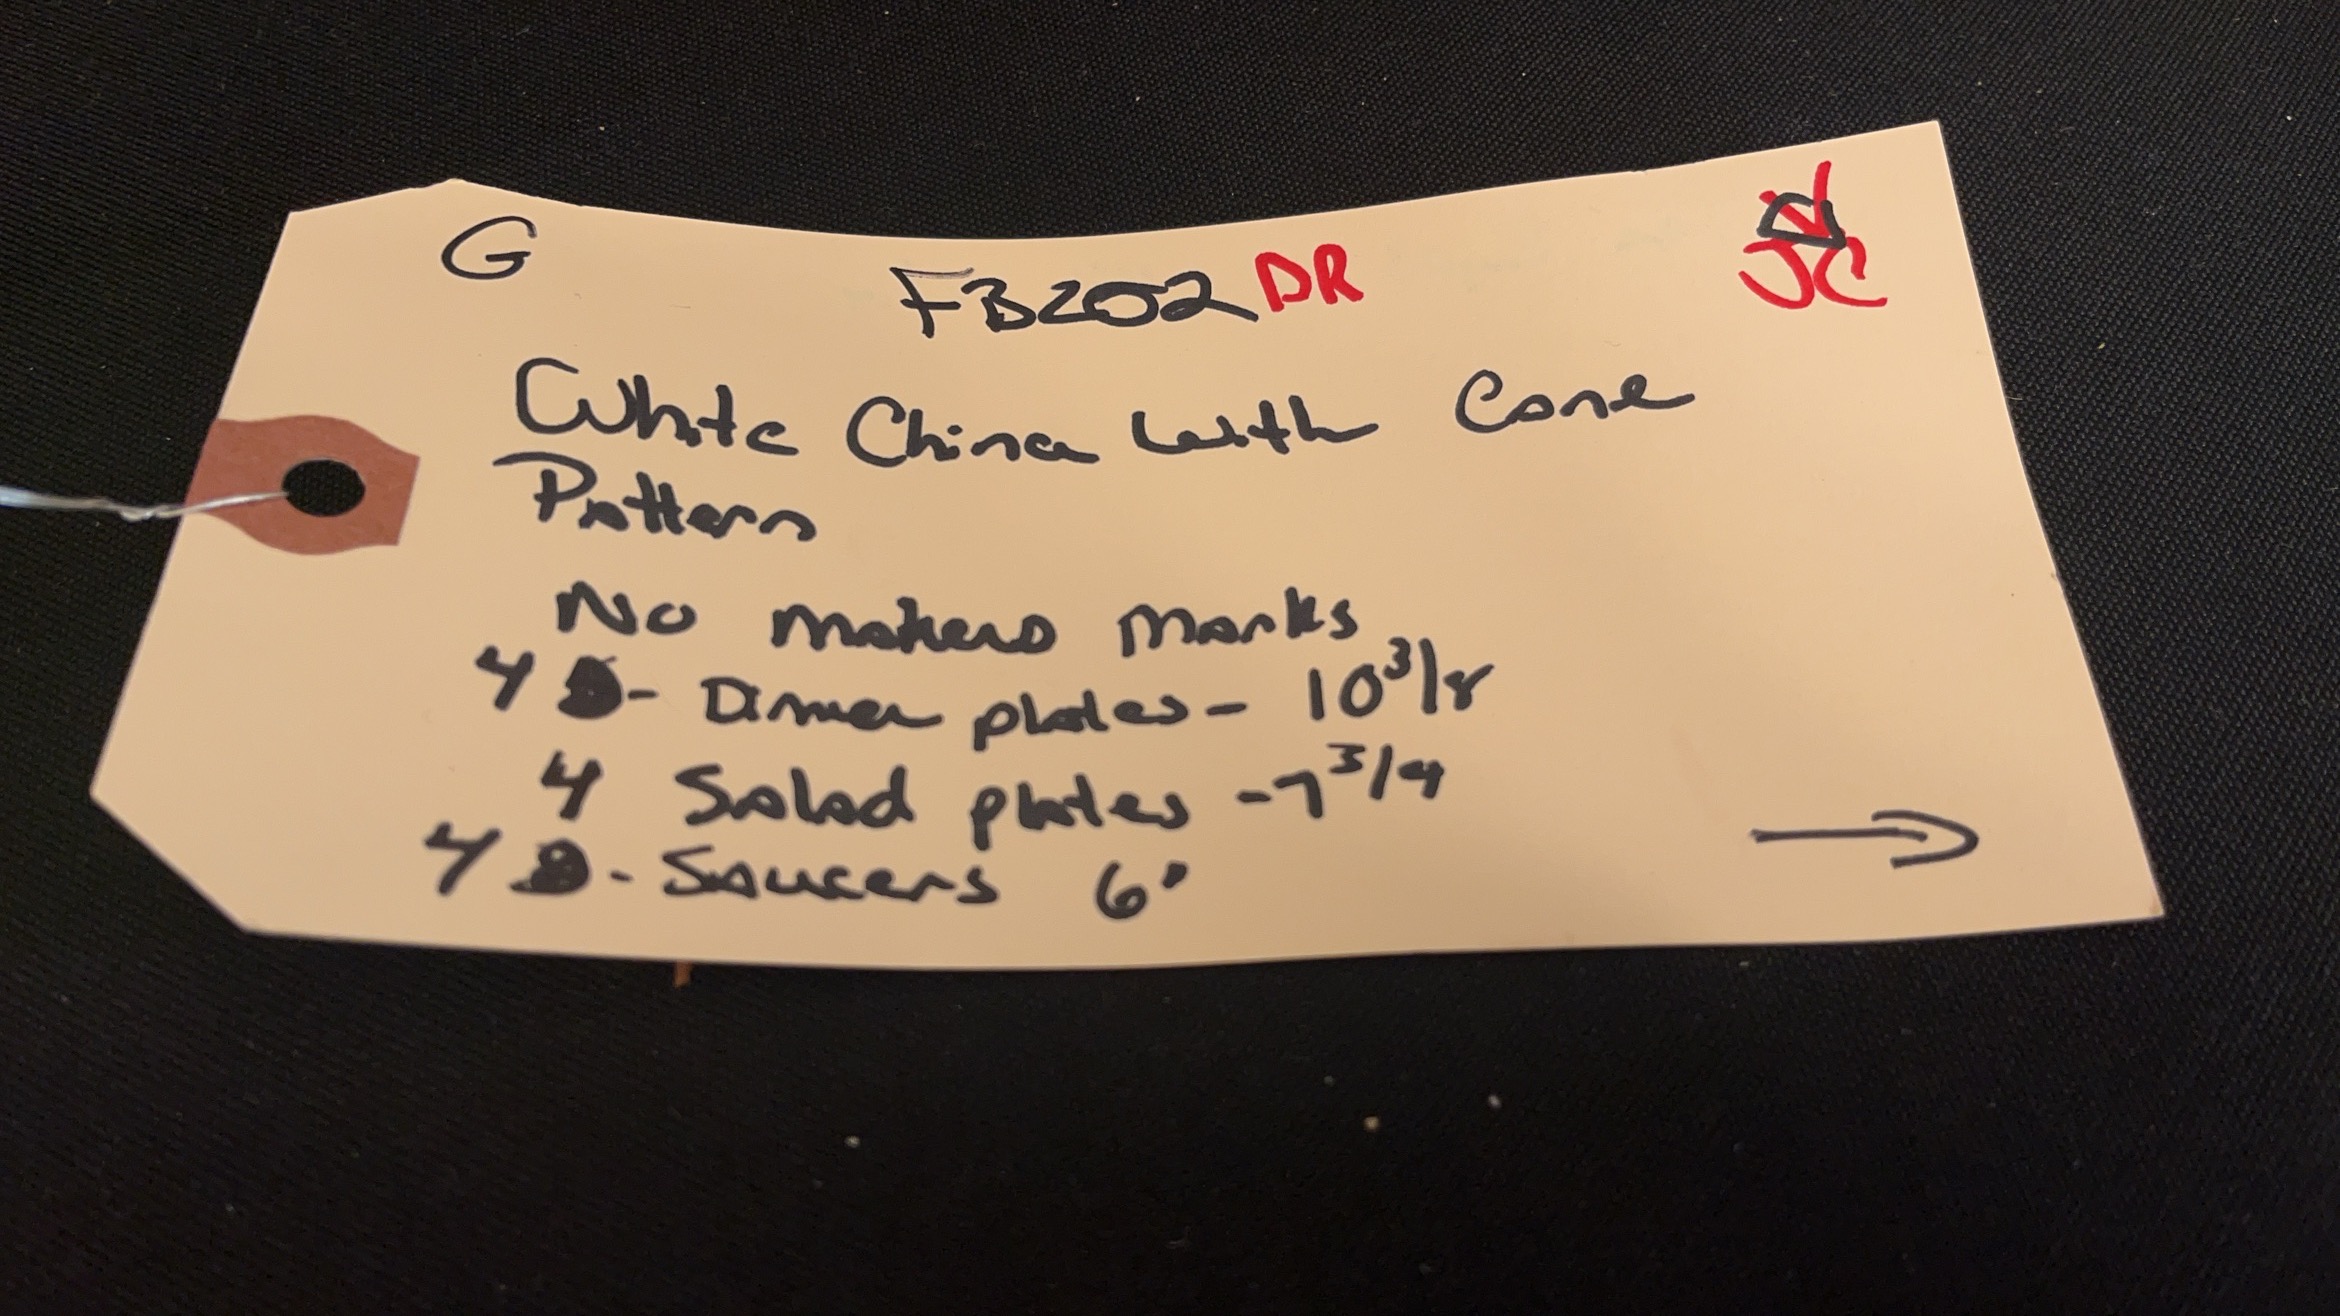 G
FB202 DR
JC
White China with Cane
Pattern
No makers marks
4 - Dinner plates - 10 3/8
4 Salad plates - 7 3/4
4 - Saucers 6"